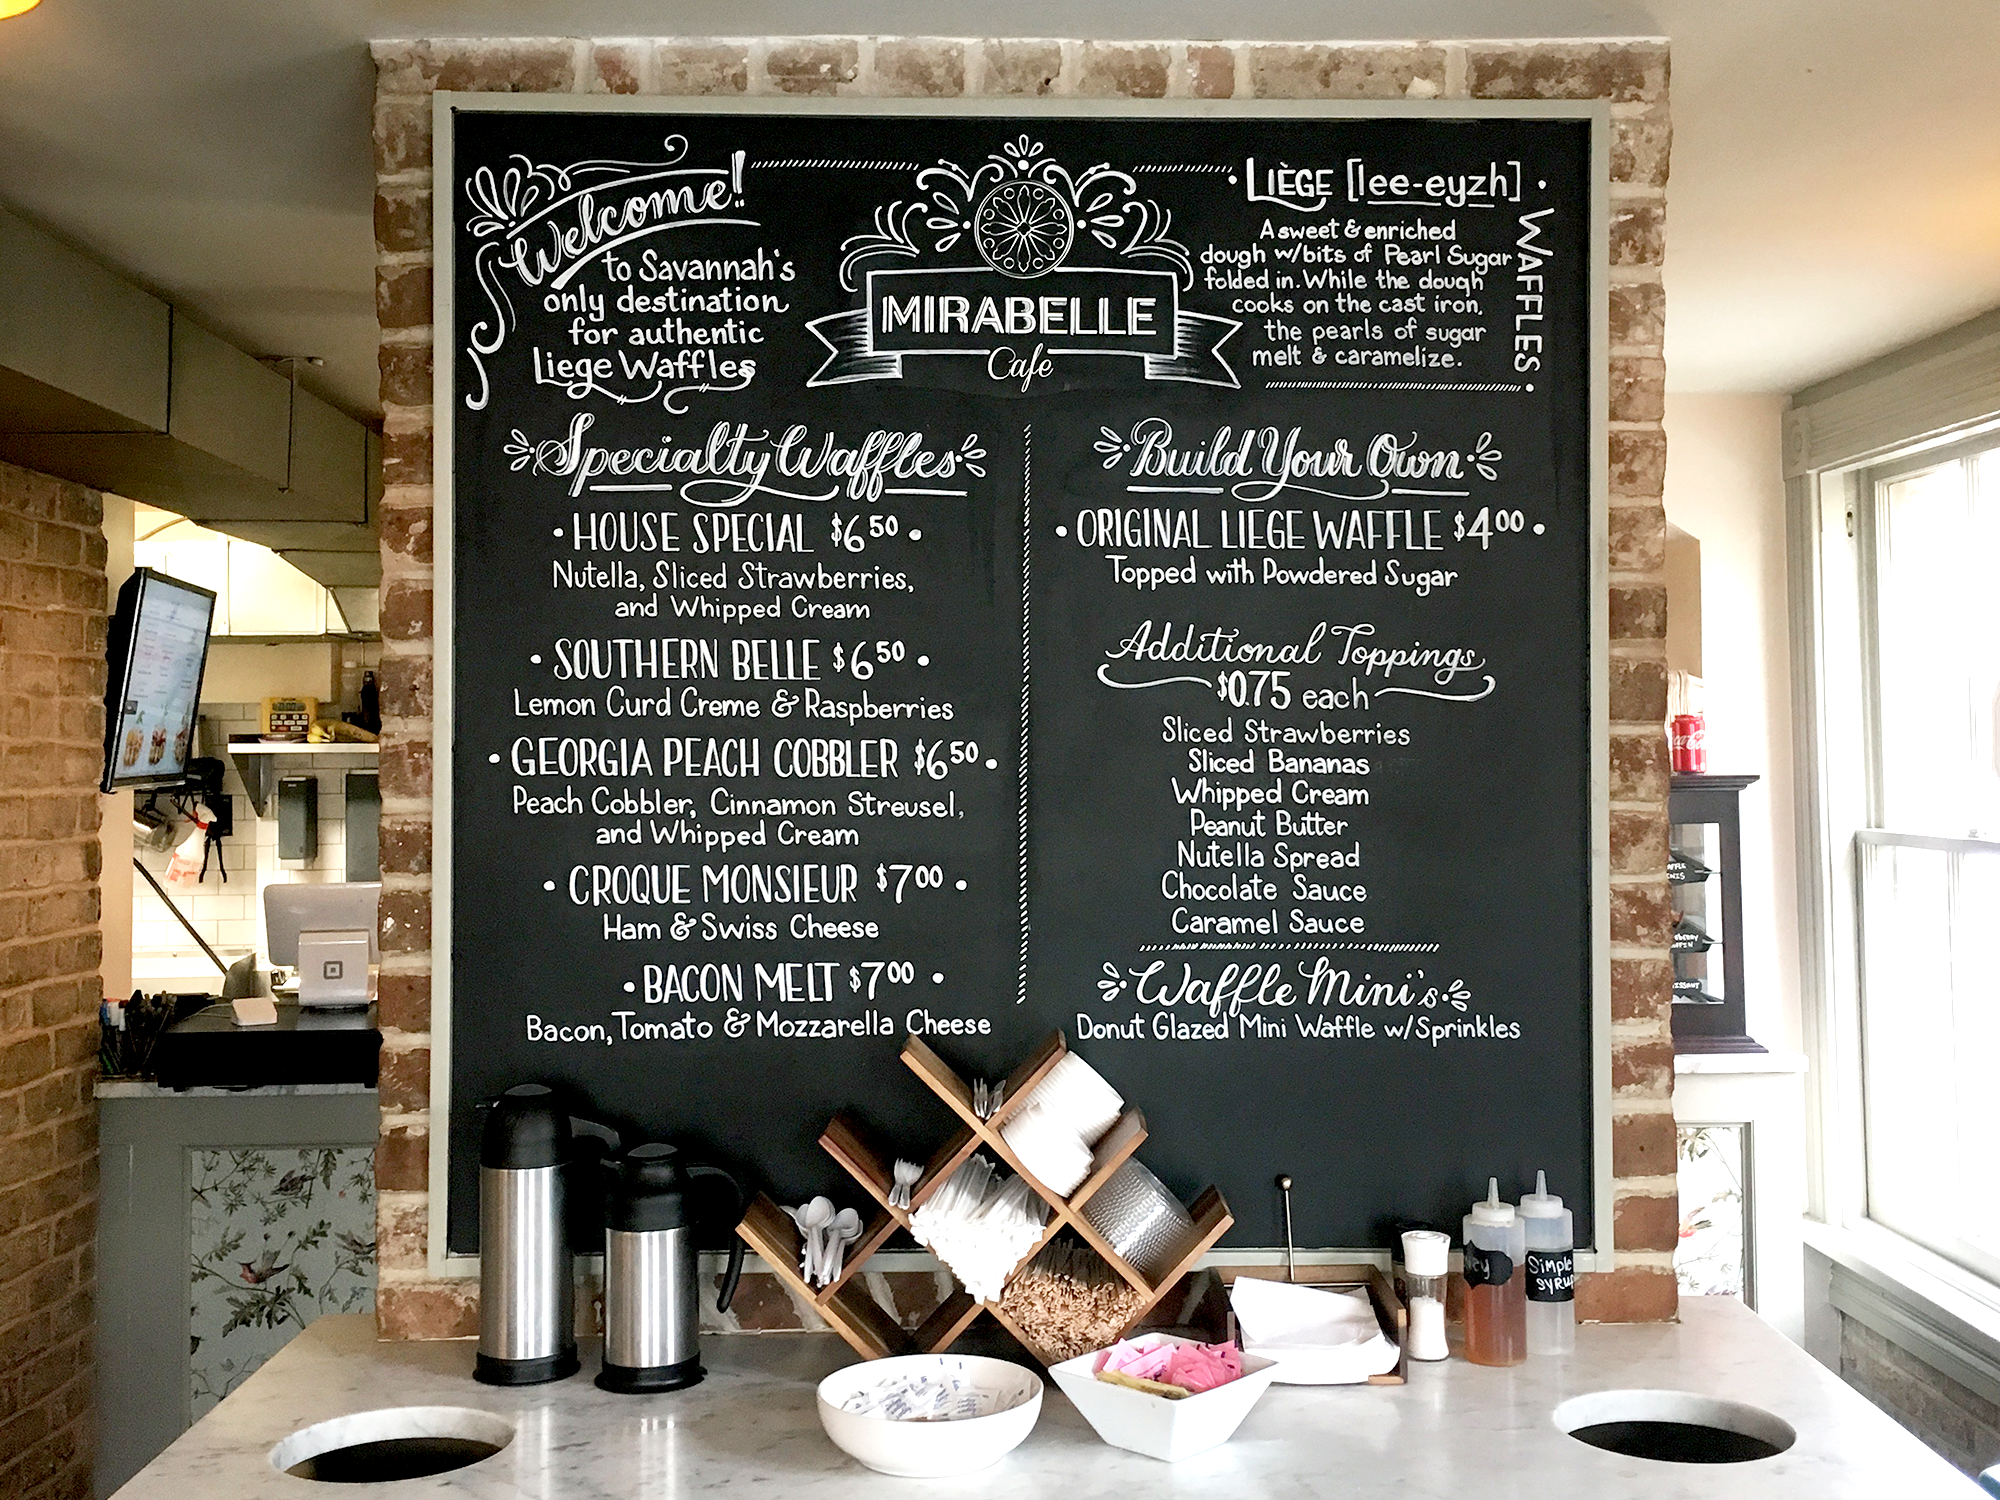 Welcome!
to Savannah's
only destination
for authentic
Liege Waffles
MIRABELLE
Cafe
LIÈGE [lee-eyzh]
WAFFLES
A sweet & enriched
dough w/bits of Pearl Sugar
folded in. While the dough
cooks on the cast iron,
the pearls of sugar
melt & caramelize.
Specialty Waffles
• HOUSE SPECIAL $6.50 •
Nutella, Sliced Strawberries,
and Whipped Cream
• SOUTHERN BELLE $6.50 •
Lemon Curd Creme & Raspberries
• GEORGIA PEACH COBBLER $6.50 •
Peach Cobbler, Cinnamon Streusel,
and Whipped Cream
• CROQUE MONSIEUR $7.00 •
Ham & Swiss Cheese
• BACON MELT $7.00 •
Bacon, Tomato & Mozzarella Cheese
Build Your Own
• ORIGINAL LIEGE WAFFLE $4.00 •
Topped with Powdered Sugar
Additional Toppings
$0.75 each
Sliced Strawberries
Sliced Bananas
Whipped Cream
Peanut Butter
Nutella Spread
Chocolate Sauce
Caramel Sauce
Waffle Mini's
Donut Glazed Mini Waffle w/Sprinkles
Simple
syrup